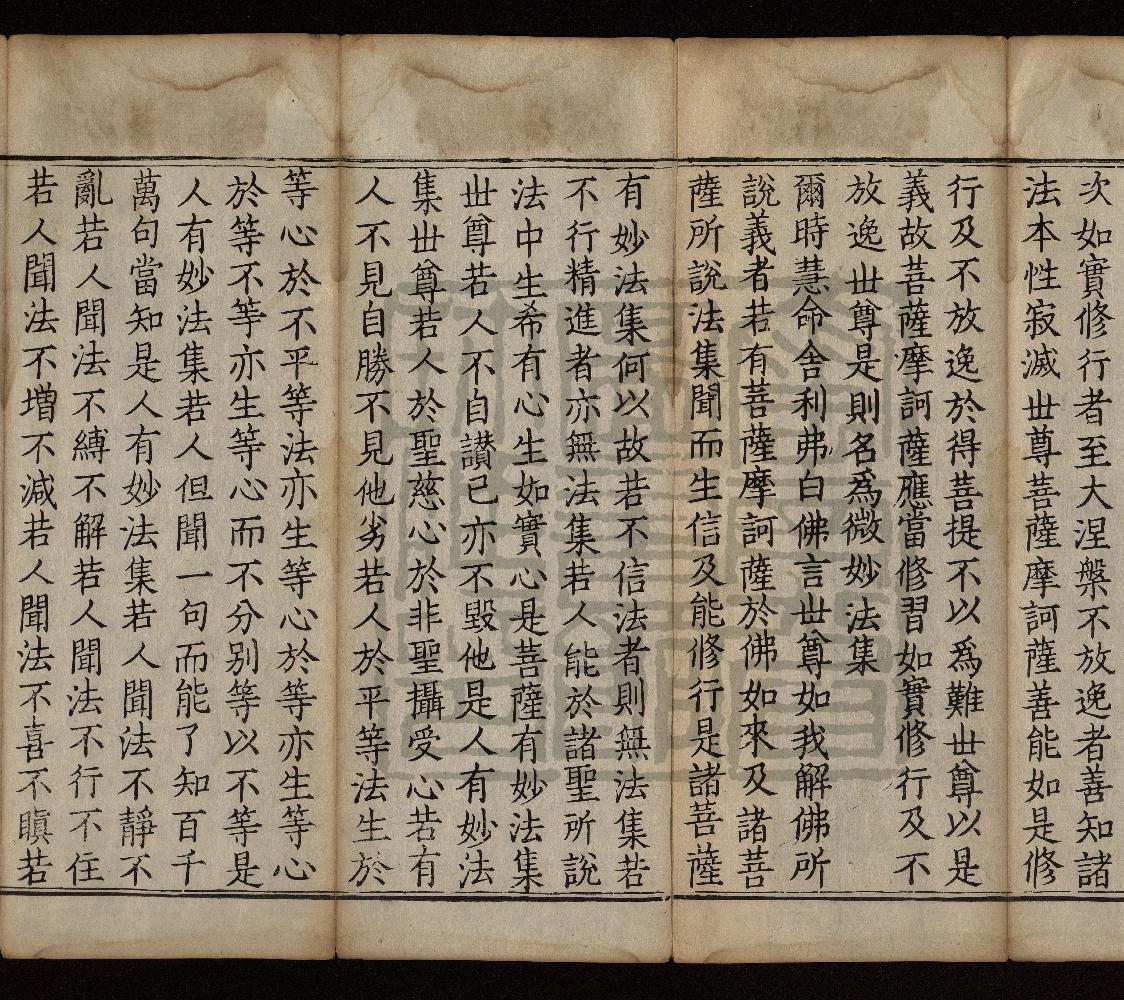 次如實修行者至大涅槃不放逸者善知諸
法本性寂滅世尊菩薩摩訶薩善能如是修
行及不放逸於得菩提不以為難世尊以是
義故菩薩摩訶薩應當修習如實修行及不
放逸世尊是則名為微妙法集
爾時慧命舍利弗白佛言世尊如我解佛所
說義者若有菩薩摩訶薩於佛如來及諸菩
薩所說法集聞而生信及能修行是諸菩薩
有妙法集何以故若不信法者則無法集若
不行精進者亦無法集若人能於諸聖所說
法中生希有心生如實心是菩薩有妙法集
世尊若人不自讃己亦不毀他是人有妙法
集世尊若人於聖慈心於非聖攝受心若有
人不見自勝不見他劣若人於平等法生於
等心於不平等法亦生等心於等亦生等心
於等不等亦生等心而不分別等以不等是
人有妙法集若人但聞一句而能了知百千
萬句當知是人有妙法集若人聞法不靜不
亂若人聞法不縛不解若人聞法不行不住
若人聞法不增不減若人聞法不喜不瞋若